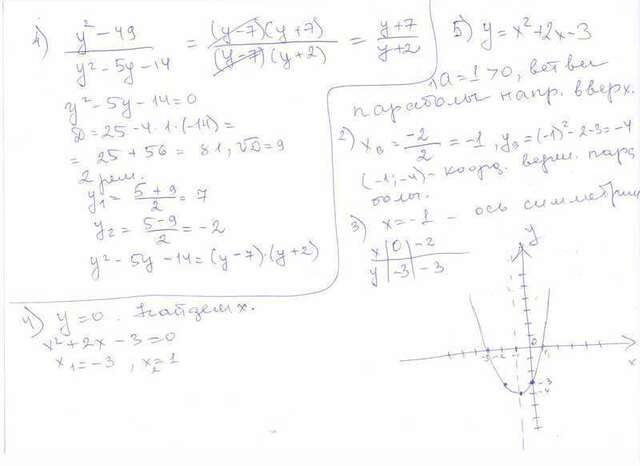 4) y² - 49 / y² - 5y - 14 = (y-7)(y+7) / (y-7)(y+2) = y+7 / y+2
y² - 5y - 14 = 0
D = 25 - 4·1·(-14) =
= 25 + 56 = 81, √D = 9
2 реш.
y₁ = 5+9 / 2 = 7
y₂ = 5-9 / 2 = -2
y² - 5y - 14 = (y-7)·(y+2)
5) y = x² + 2x - 3
1 a = 1 > 0, ветви
параболы напр. вверх.
2) xв = -2 / 2 = -1, yв = (-1)² - 2 - 3 = -4
(-1; -4) - коорд. верш. пара
болы.
3) x = -1 - ось симметрии
x | 0 | -2
y | -3 | -3
4) y = 0. Найдем x.
x² + 2x - 3 = 0
x₁ = -3, x₂ = 1
y
-3 -2 0 1
x
-3
-4